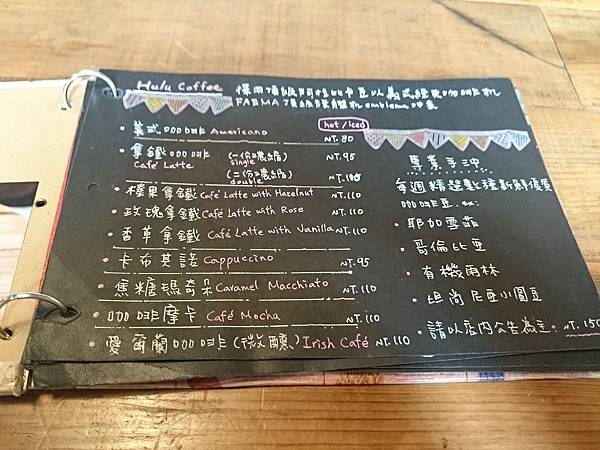 Hulu Coffee 採用頂級阿拉比卡豆以義式經典咖啡机
FAEMA 頂級旗艦机 emblema 沖煮
hot/iced
美式咖啡 Americano NT.80
拿鐵咖啡 (一份濃縮) NT.95
Café Latte single
(二份濃縮)
double
榛果拿鐵 Café Latte with Hazelnut NT.110
玫瑰拿鐵 Café Latte with Rose NT.110
香草拿鐵 Café Latte with Vanilla NT.110
卡布其諾 Cappuccino NT.95
焦糖瑪奇朵 Caramel Macchiato NT.110
咖啡摩卡 Café Mocha NT.110
愛爾蘭咖啡 (微醺) Irish Café NT.110
專業手沖
每週精選數種新鮮優質
咖啡豆. ex:
耶加雪菲
哥倫比亞
有機雨林
坦尚尼亞小圓豆
請以店內公告為主. NT.150